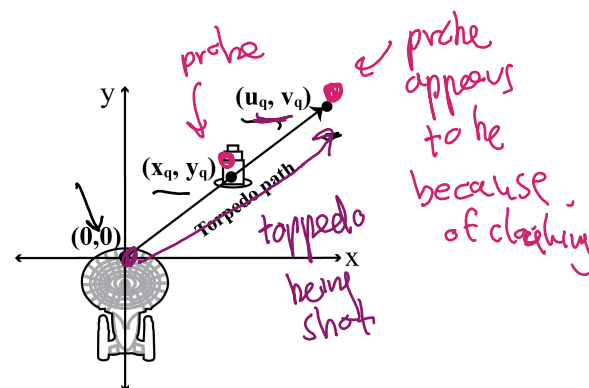 probe
probe
appears
to be
because
of cloaking
y
(u_q, v_q)
(x_q, y_q)
Torpedo path
(0,0)
x
torpedo
being
shot